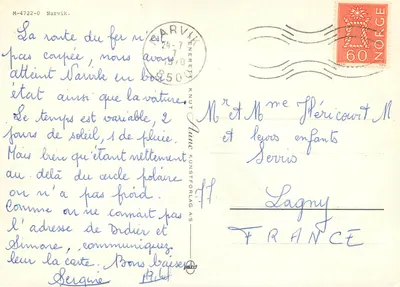 M-4722-O Narvik.
La route du fer n'est
pas coupée, nous avons
atteint Narvik en bon
état ainsi que la voiture.
Le temps est variable, 2
jours de soleil, 1 de pluie.
Mais bien qu'étant nettement
au-delà du cercle polaire
on n'a pas froid.
Comme on ne connait pas
l'adresse de Didier et
Simone, communiquez
leur la carte. Bons baisers
NARVIK
24-7
1970
NORGE
60
KUNSTFORLAG A.S
Mr et Mme Héricourt M
et leurs enfants
Serris
77
Lagny
FRANCE